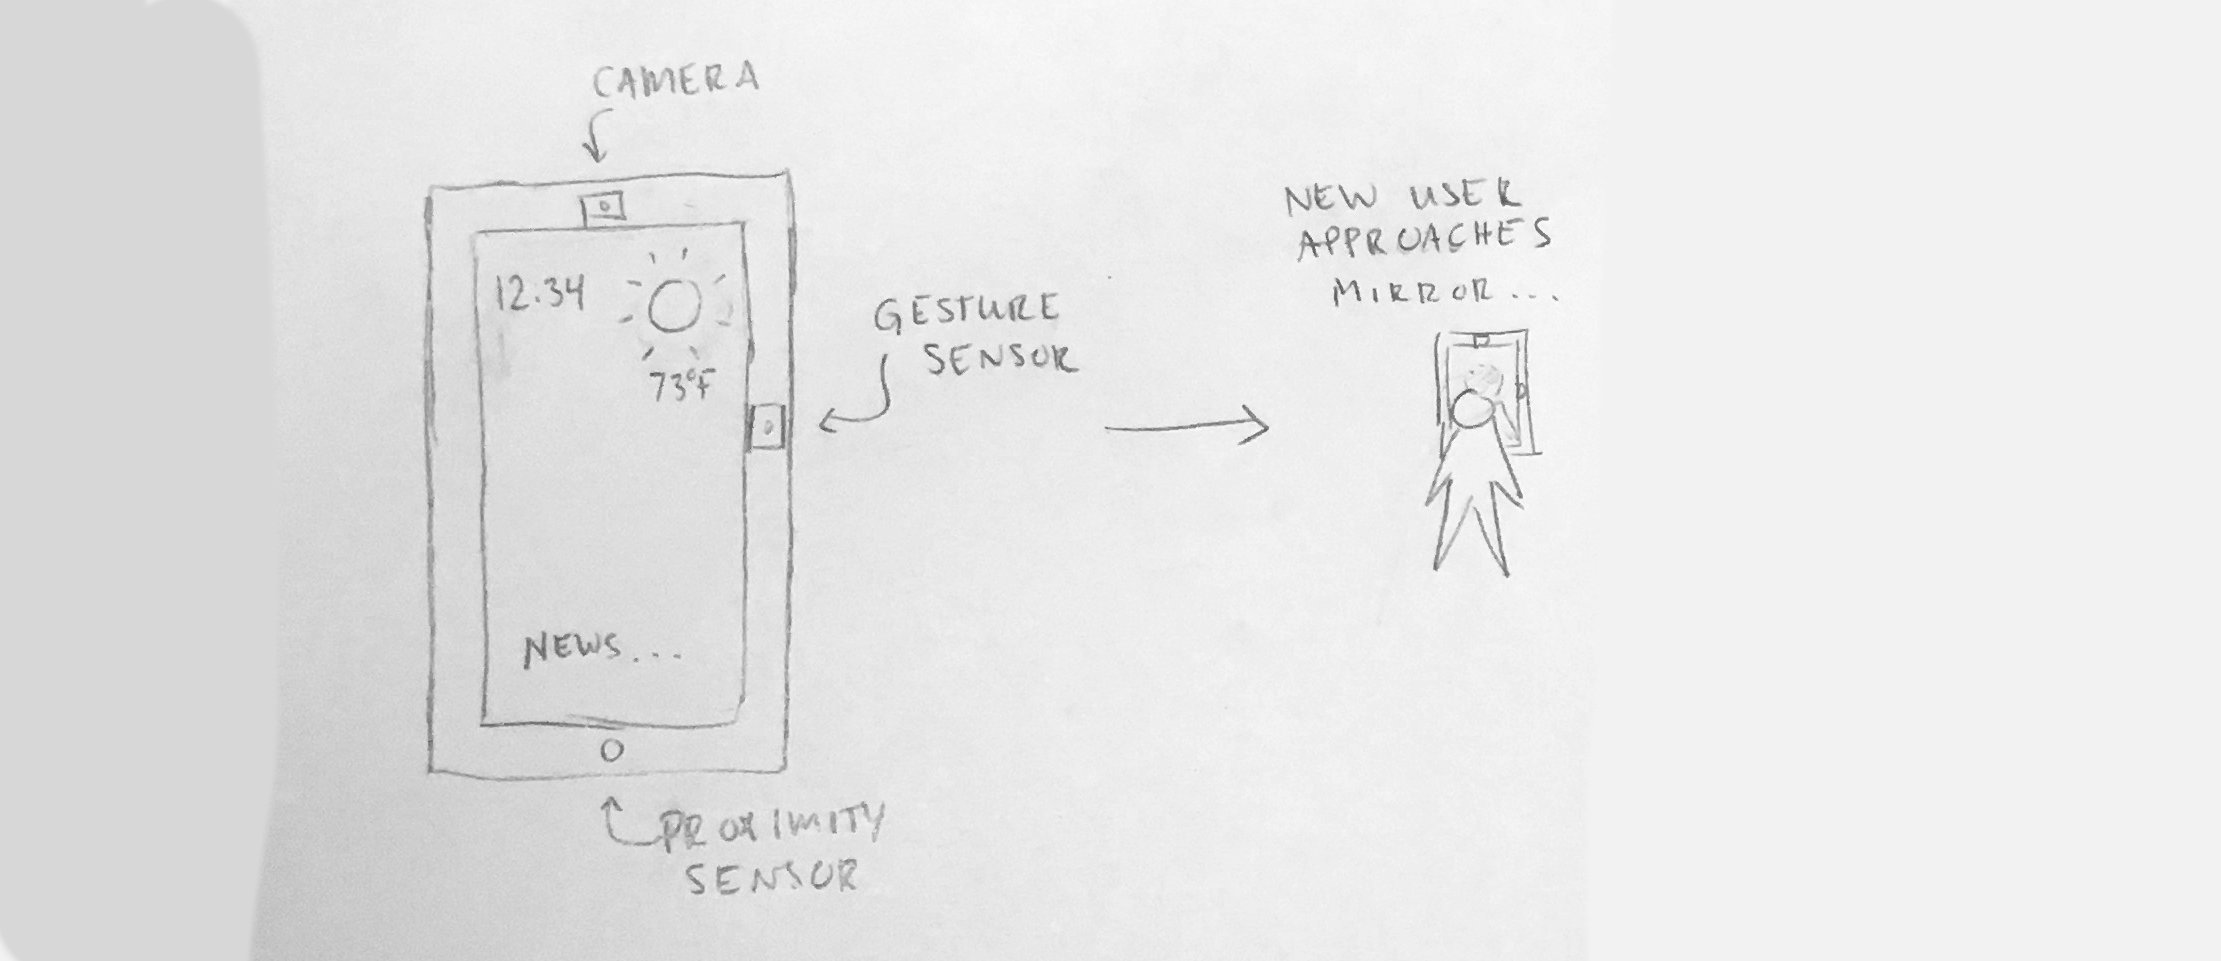 CAMERA
12:34
73°F
NEWS...
GESTURE
SENSOR
PROXIMITY
SENSOR
NEW USER
APPROACHES
MIRROR...